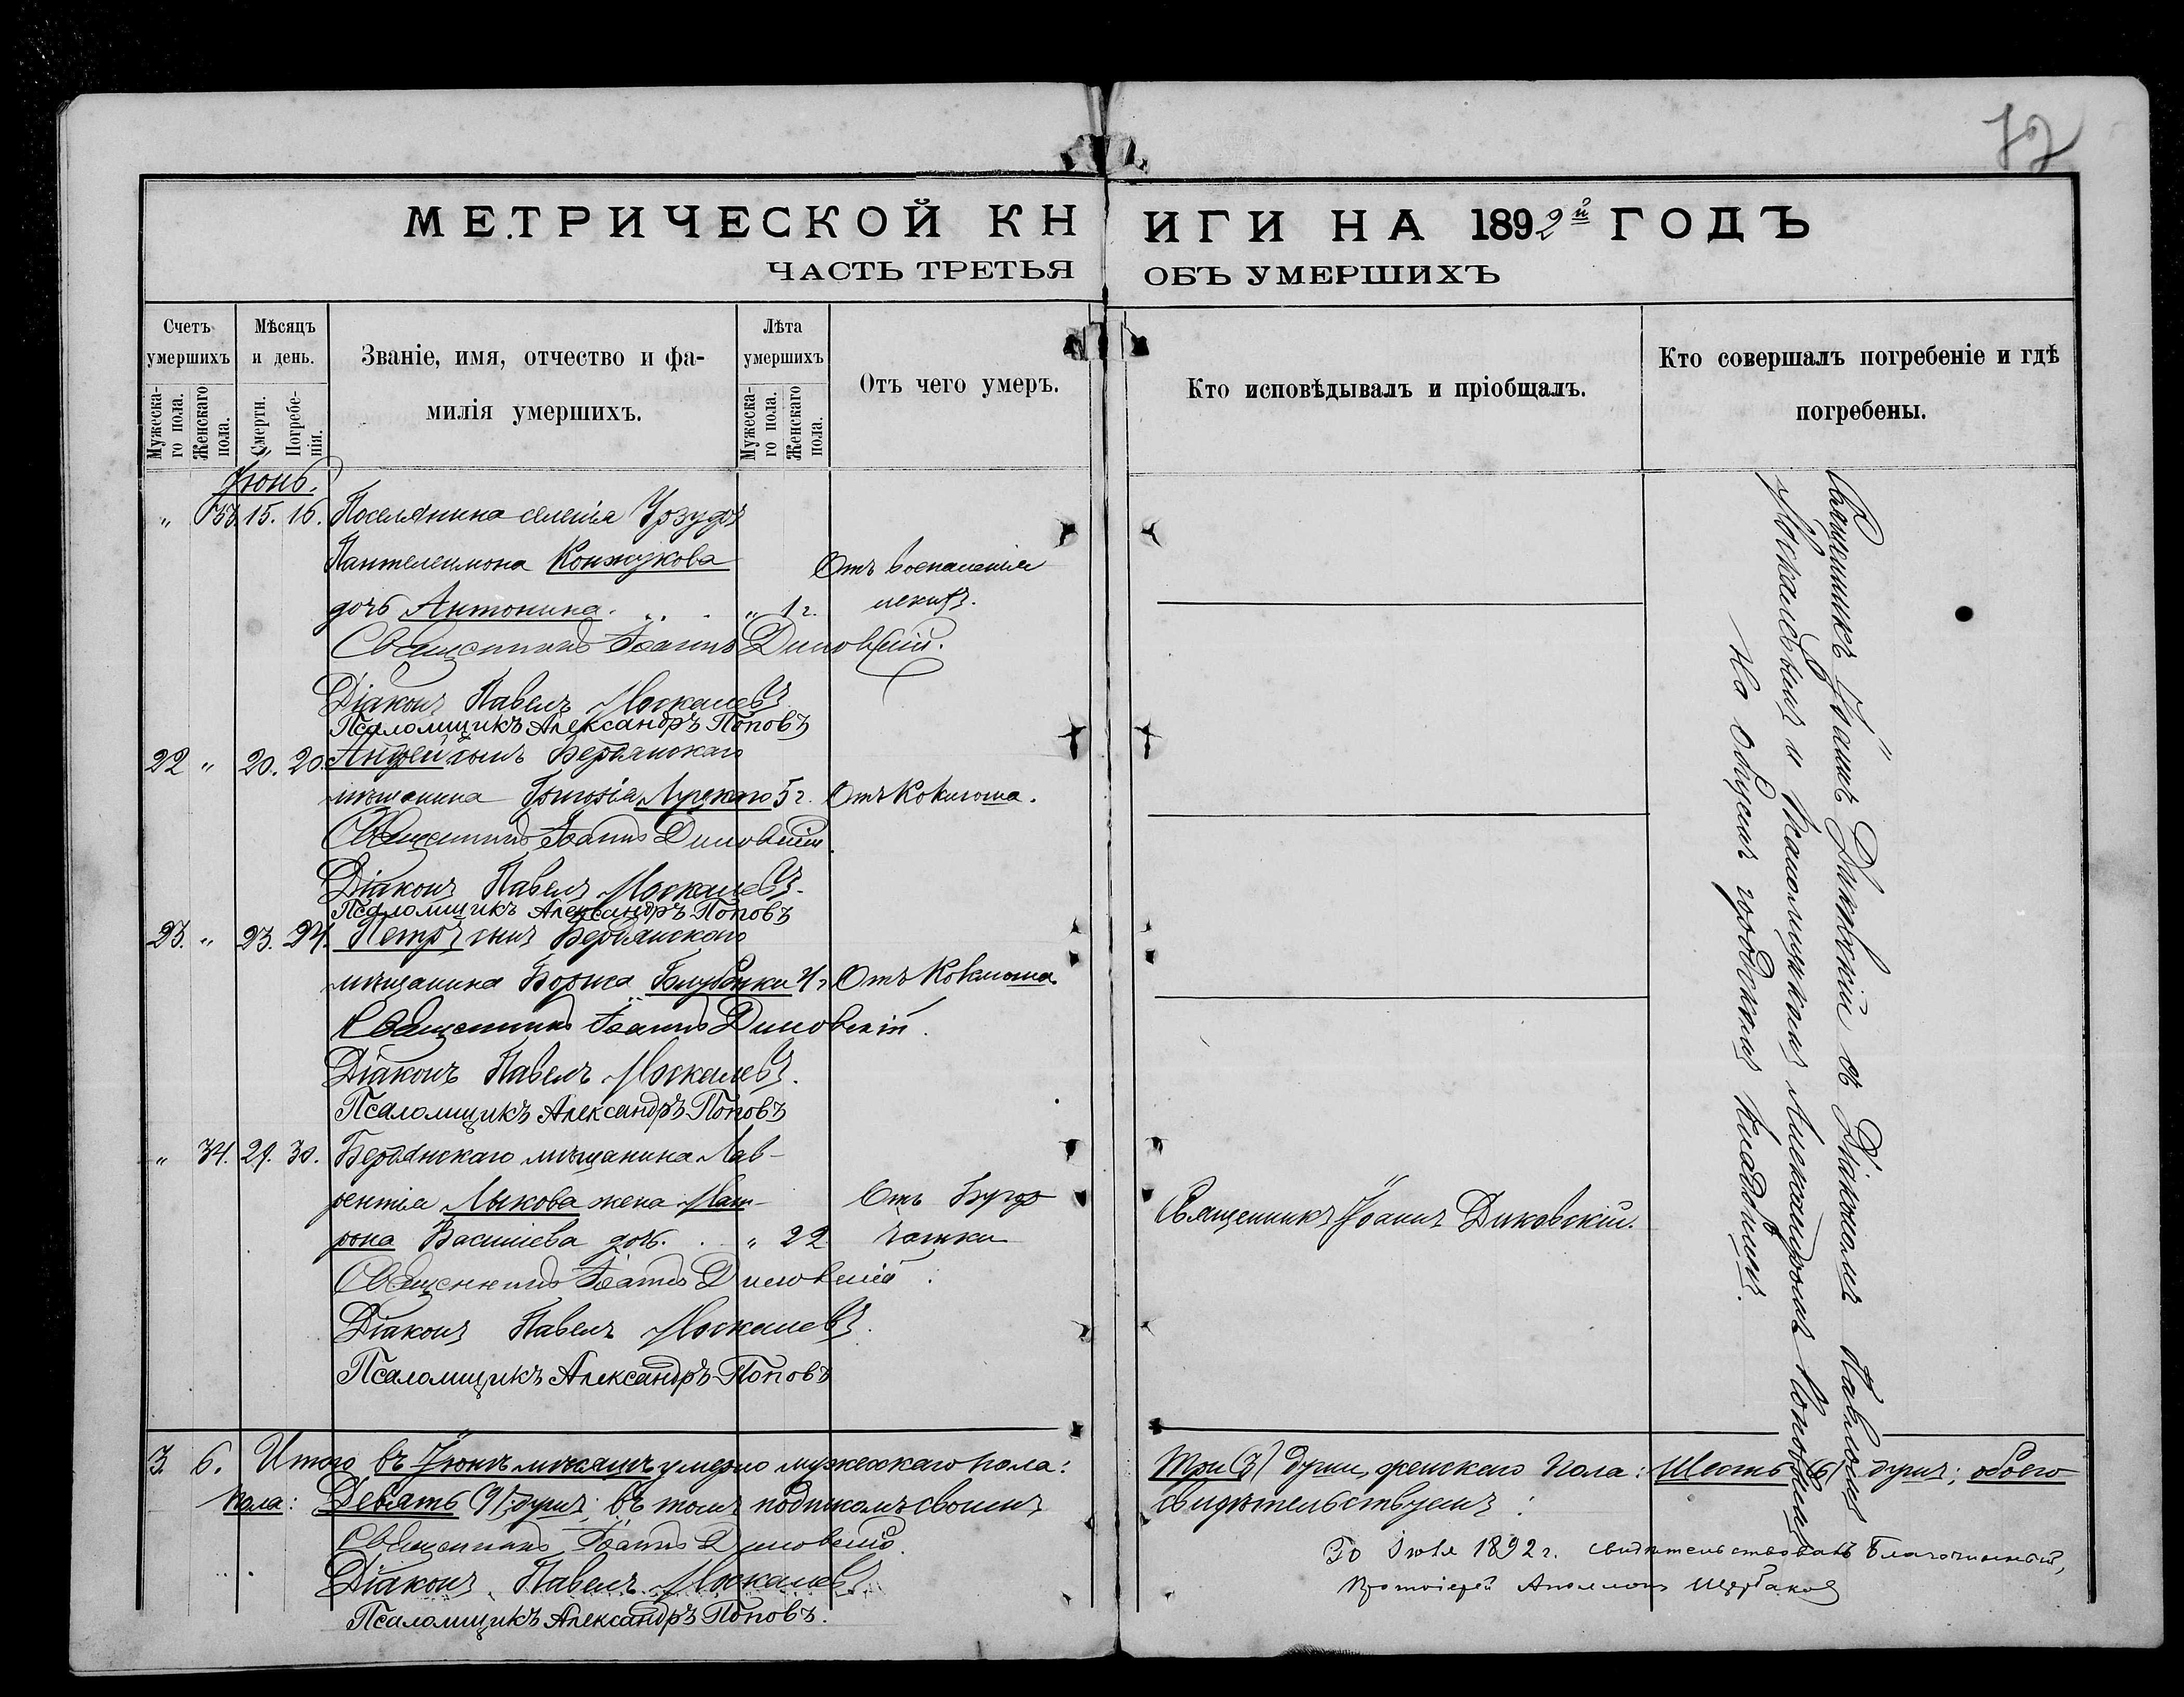 72
МЕТРИЧЕСКОЙ КНИГИ НА 1892й ГОДЪ
ЧАСТЬ ТРЕТЬЯ ОБЪ УМЕРШИХЪ
Счетъ умершихъ
Мужеска-го пола.
Женскаго пола.
Мѣсяцъ и день.
Смерти.
Погребе-нія.
Званіе, имя, отчество и фа-
милія умершихъ.
Лѣта умершихъ
Мужеска-го пола.
Женскаго пола.
Отъ чего умеръ.
Кто исповѣдывалъ и пріобщалъ.
Кто совершалъ погребеніе и гдѣ
погребены.
Іюнь.
15. 16. Поселянина селенія Урзуфъ
Пантелеимона Конжукова Отъ воспаленія
дочь Антонина. " 1 г.
Священникъ Іоаннъ Диковскій.
Діаконъ Павелъ Москалевъ
Псаломщикъ Александръ Поповъ
22 " 20. 20. Андрей сынъ Бердянскаго
мѣщанина 5 г. Отъ коклюша.
Священникъ Іоаннъ Диковскій
Діаконъ Павелъ Москалевъ.
Псаломщикъ Александръ Поповъ
23. " 23. 24. Петръ сынъ Бердянскаго
мѣщанина Бориса 4 г. Отъ Коклюша
Священникъ Іоаннъ Диковскій.
Діаконъ Павелъ Москалевъ.
Псаломщикъ Александръ Поповъ
" 34. 29. 30. Бердянскаго мѣщанина Лав-
рентія Лыкова жена Мат-
рона Васильева дочь. " 22
Отъ Буго
чотки
Священникъ Іоаннъ Диковскій.
Священникъ Іоаннъ Диковскій.
Діаконъ Павелъ Москалевъ.
Псаломщикъ Александръ Поповъ
Священникъ Іоаннъ Диковскій съ Діакономъ Павломъ
Москалевымъ и Псаломщикомъ Александромъ Поповымъ
На общемъ городскомъ кладбищѣ.
3. 6. Итого въ Іюнѣ мѣсяцѣ умерло мужескаго пола: Три (3) души, женскаго пола: Шесть (6) душъ; обоего
пола: Девять (9) душъ; въ томъ подписомъ своимъ свидѣтельствуемъ:
Священникъ Іоаннъ Диковскій.
Діаконъ Павелъ Москалевъ.
Псаломщикъ Александръ Поповъ.
Іюля 1892 г. свидѣтельствовалъ Благочинный,
Протоіерей Аполлонъ Щербаковъ